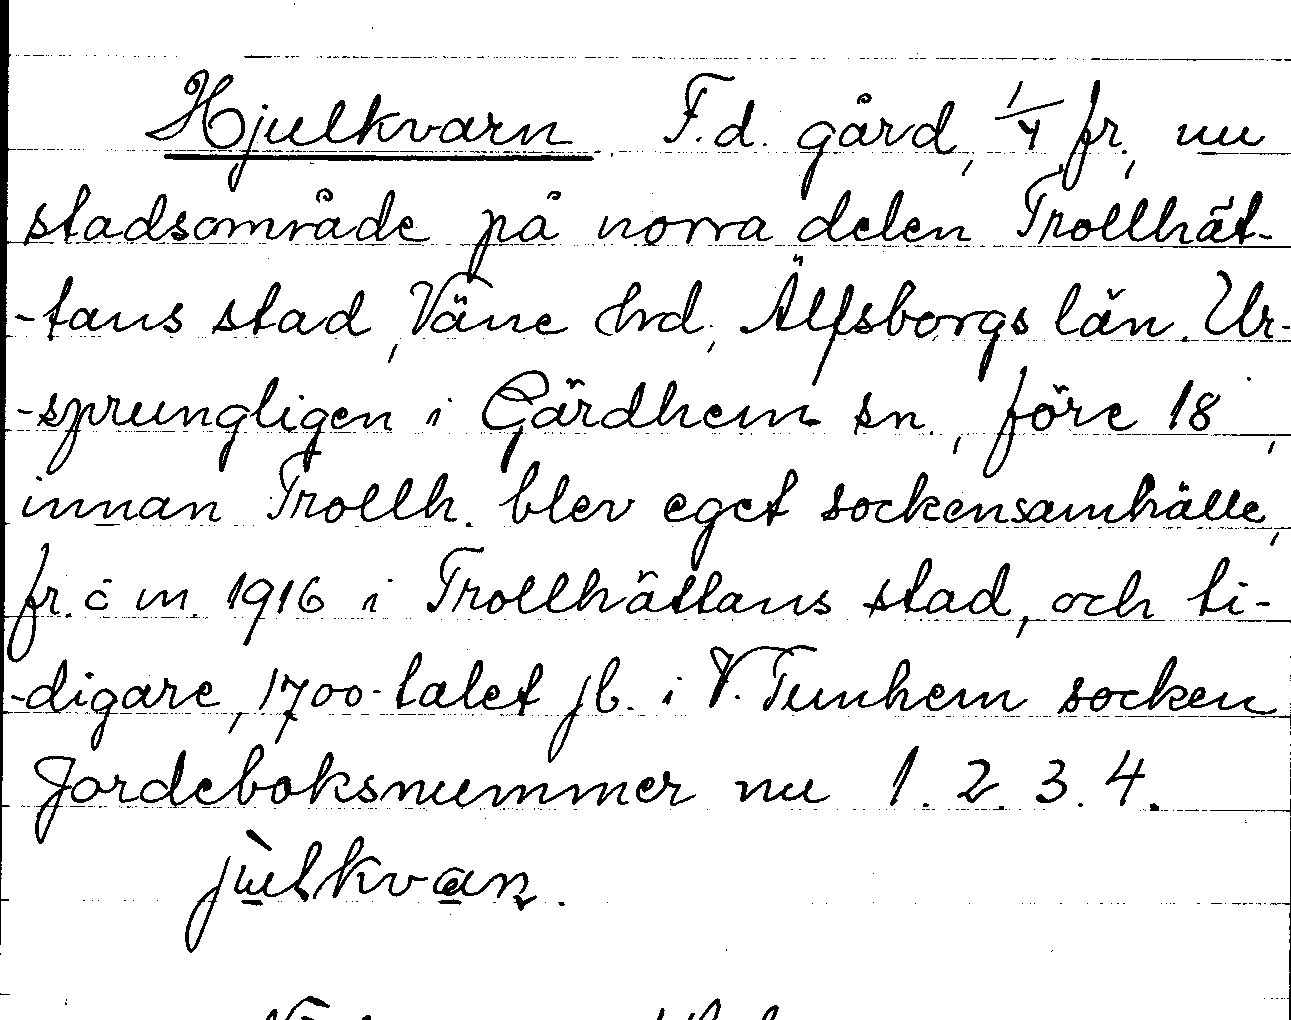 Hjulkvarn. F.d. gård, 1/4 fr., nu
stadsområde på norra delen Trollhät-
-tans stad, Väne hrd, Älfsborgs län. Ur-
-sprungligen i Gärdhem sn., före 18 ,
innan Trollh. blev eget sockensamhälle,
fr. o m. 1916 i Trollhättans stad, och ti-
-digare, 1700-talet jb. i V. Tunhem socken
Jordeboksnummer nu 1. 2. 3. 4.